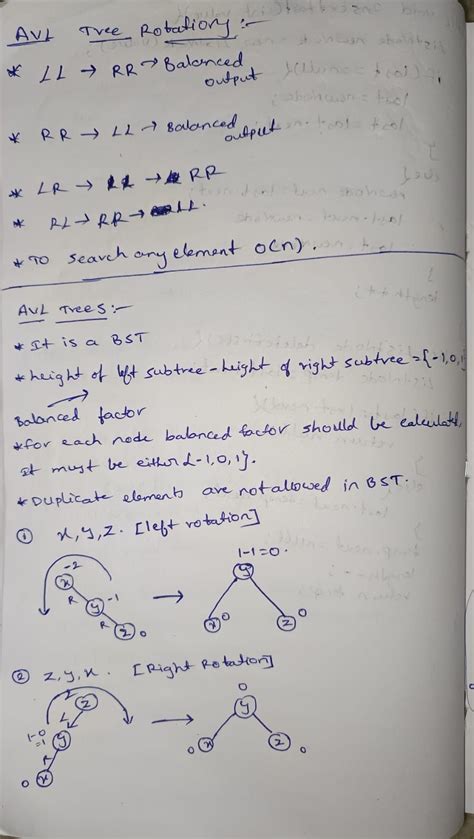 AVL Tree Rotations:-
* LL → RR → Balanced
output
* RR → LL → Balanced
output
* LR → LL → RR
* RL → RR → LL.
* TO search any element O(n).
AVL Trees:-
* It is a BST
* height of left subtree - height of right subtree = {-1,0,1}
Balanced factor
* for each node balanced factor should be calculated,
it must be either {-1,0,1}.
* Duplicate elements are not allowed in BST.
① x, y, z. [left rotation]
-2 1-1=0.
x y
R y -1
R z 0 x 0 z 0
② z, y, x. [Right Rotation]
2 z 0
L y
1-0
=1 y
0 x 0 x z 0